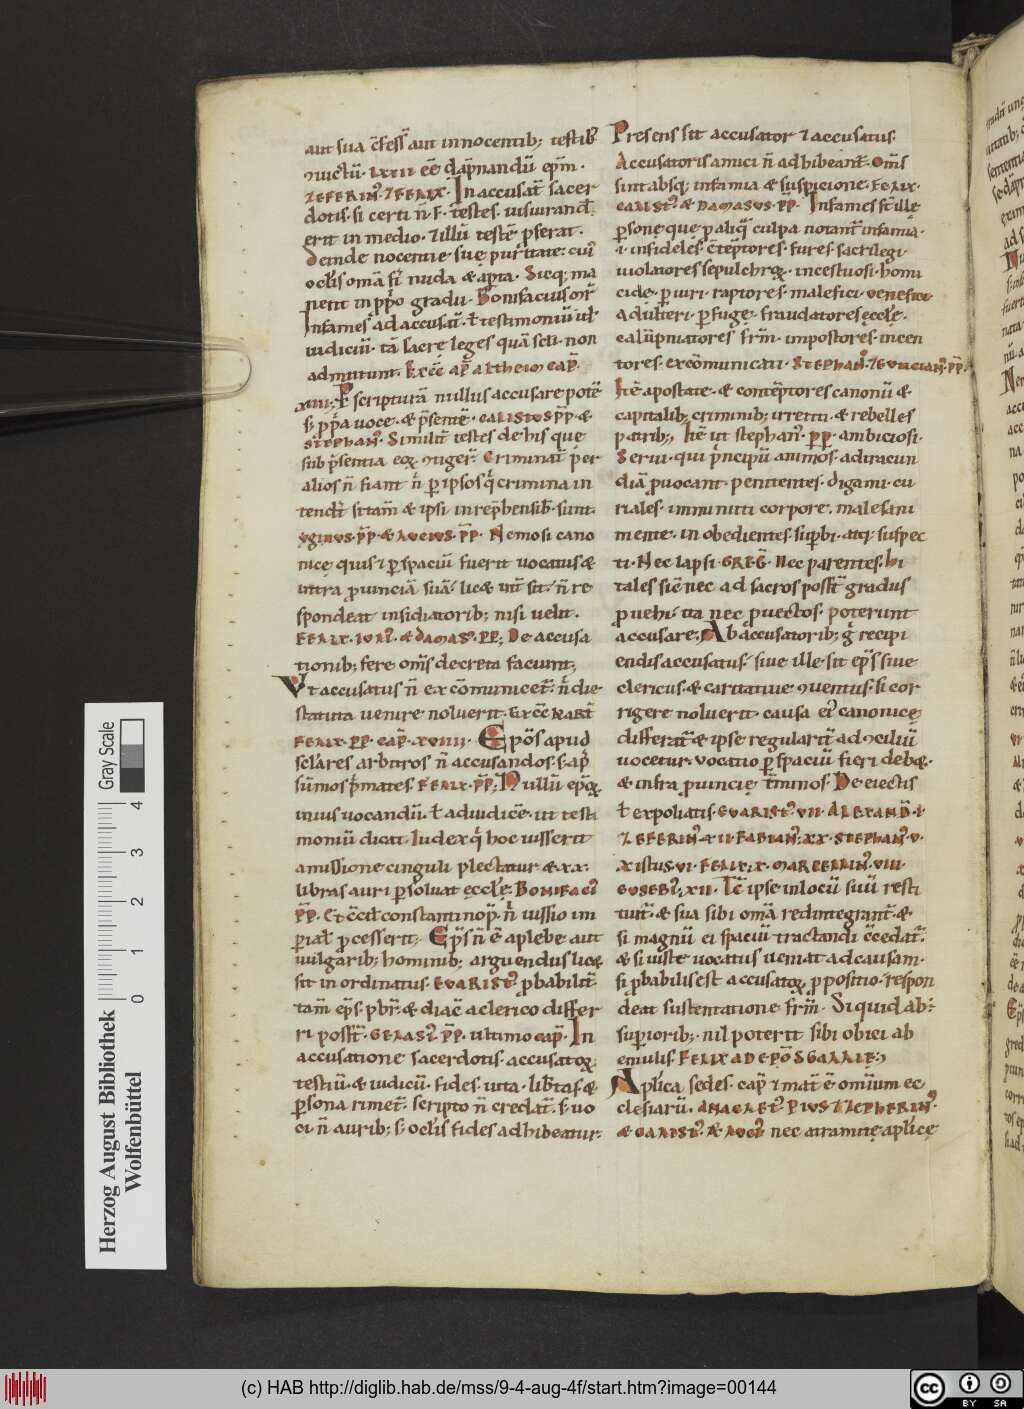 aut sua c̄fess̄ aut innocentib; testib'
ꝯuictū· LXXII eē dāpnandū ep̄m·
ZEFERIN' 7 FELIX· In accusat̄ sacer
dotis· si certi n̄ s̄· testes· iusiurand̄
erit in medio· 7 illū testē p̄ferat·
Deinde nocentie suę puritate· cui'
ocl̄is om̄a st̄ nuda & apta· Sicq; ma
nent in pp̄o gradu· Bonifacius
Infames ad accusat̄· ł testimoniū ul̄
iudiciū· tā sacrę leges quā scl̄i· non
admittunt· Ex cō ap̄ altheim cap̄·
XIIII· P scripturā nullus accusare potē
s; pp̄a uoce· & p̄sentē· CALISTUS P̄P· &
STEPHAN'· Similit̄ testes de his que
sub p̄sentia eoꝝ ꝯtiger̄· Criminat̄ per
alios n̄ fiant n̄ p ipsos q̄ crimina in
tend̄t si tam̄ & ipsi inrep̄hensib̄· sunt·
YGINUS· P̄P· & LUCIUS· P̄P· Nemo si cano
nicę quis 7 p spaciū fuerit uocatus &
intra p̄uinciā suā· licæ int̄ sit· n̄ re
spondeat insidiatorib; nisi uelit·
FELIX· IUL'· & DAMAS'· P̄P; De accusa
tionib; fere om̄s decreta faciunt;
Ut accusatus n̄ excōmunicet̄· n̄ die
statuta uenire noluerit· Ex cō KART̄
FELIX· P̄P· CAP̄· XVIIII· Ep̄os apud
sclāres arbitros n̄ accusandos· s; ap̄
sūmos p̄mates· FELIX· P̄P; Nullū ep̄oꝝ
inuis uocandū· ł adiudicē· ut testi
moniū dicat· Iudex q̄ hoc iusserit
amissione cinguli plectatur & XX·
libras auri p̄soluat ęccl̄ę· BONIFACI'
P̄P· Et c̄cil constantinop̄· n̄ iussio im
p̄ial' p̄cesserit; Ep̄s n̄ ē a plebe aut
uulgarib; hominib; arguendus licæ
sit inordinatus· EVARIST' p̄babilit̄
tam̄ ep̄s· pb̄r· & diac̄ a clerico differ
ri poss̄t· GELAS'· P̄P· ultimo cap̄· In
accusatione sacerdotis· accusatoꝝ
testiū· & iudicū· fides· uita· lib̄tas· &
p̄sona rimet̄· scripto n̄ credat̄· s; uo
ci· n̄ aurib; s; ocl̄is fides adhibeatur·
Presens sit accusator 7 accusatus·
Accusatoris amici n̄ adhibeant̄· Om̄s
sint absq; infamia & suspicione· FELIX·
CALIST'· & DAMASUS· P̄P· Infames st̄ ille
p̄sonę que p aliq̄ culpa notant̄ infamia·
·i· infideles· c̄tēptores· fures· sacrilegi·
uiolatores sepulchroꝝ· incestuosi· homi
cidę· p̄iuri· raptores· malefici· venefici·
adulteri· p̄fugę· fraudatores ęccl̄ę·
calūpniatores fr̄m· impostores· incen
tores· excōmunicati· STEPHAN'· 7 EUTICIAN'· P̄P·
Itē apostate· & contēptores canonū &
capitalib; criminib; irretiti· & rebelles
patrib; Itē ut stephan'· P̄P· ambiciosi·
Serui· qui p̄ncipū animos· ad iracun
diā p̄uocant· penitentes· digami· cu
riales· inmuniti corpore· male sani
mente· in obedientes· sup̄bi· atq; suspec
ti· Nec lapsi· GREG̅· Nec parentes· hi
tales siē nec ad sacros poss̄t gradus
p̄uehi· ita nec p̄uectos· poterunt
accusare; Ab accusatorib; ḡ recipi
endis accusatus· siue ille sit ep̄s siue
clericus· & caritatiue ꝯuentus· si cor
rigere noluerit causa ei' canonicę
differat̄ & ipse regularit̄ ad ꝯciliū
uocetur· uocatio p spaciū fieri debæ·
& infra p̄uincię t̄minos· De eiectis
ł expoliatis· EUARIST'· VII· ALEXAND̄· I·
ZEFERIN'· XII· FABIAN'· XX· STEPHAN'· V·
Xistus· VI· FELIX· X· MARCELLIN'· VIII·
EUSEB'· XII· Tc̄ ipse inlocū suū resti
tuit̄· & sua sibi om̄a redintegrant̄· &
si magnū ei spaciū tractandi c̄cedat̄·
& si iuste uocatus ueniat ad causam·
si p̄babilis est accusatoꝝ p̄positio· respon
deat sustentatione fr̄m· Si quid ab
sup̄iorib; nil poterit sibi obici ab
emulis· FELIX AD EPŌS GALLIE;
Aplica sedes· cap̄ 7 mat̄ ē omium ec
clesiarū· ANACLET'· PIUS 7 ZEPHERIN'·
& CALIST'· & LUCI' nec a tramite aplicę
Herzog August Bibliothek
Wolfenbüttel
Gray Scale
0 1 2 3 4
(c) HAB http://diglib.hab.de/mss/9-4-aug-4f/start.htm?image=00144
cc BY SA